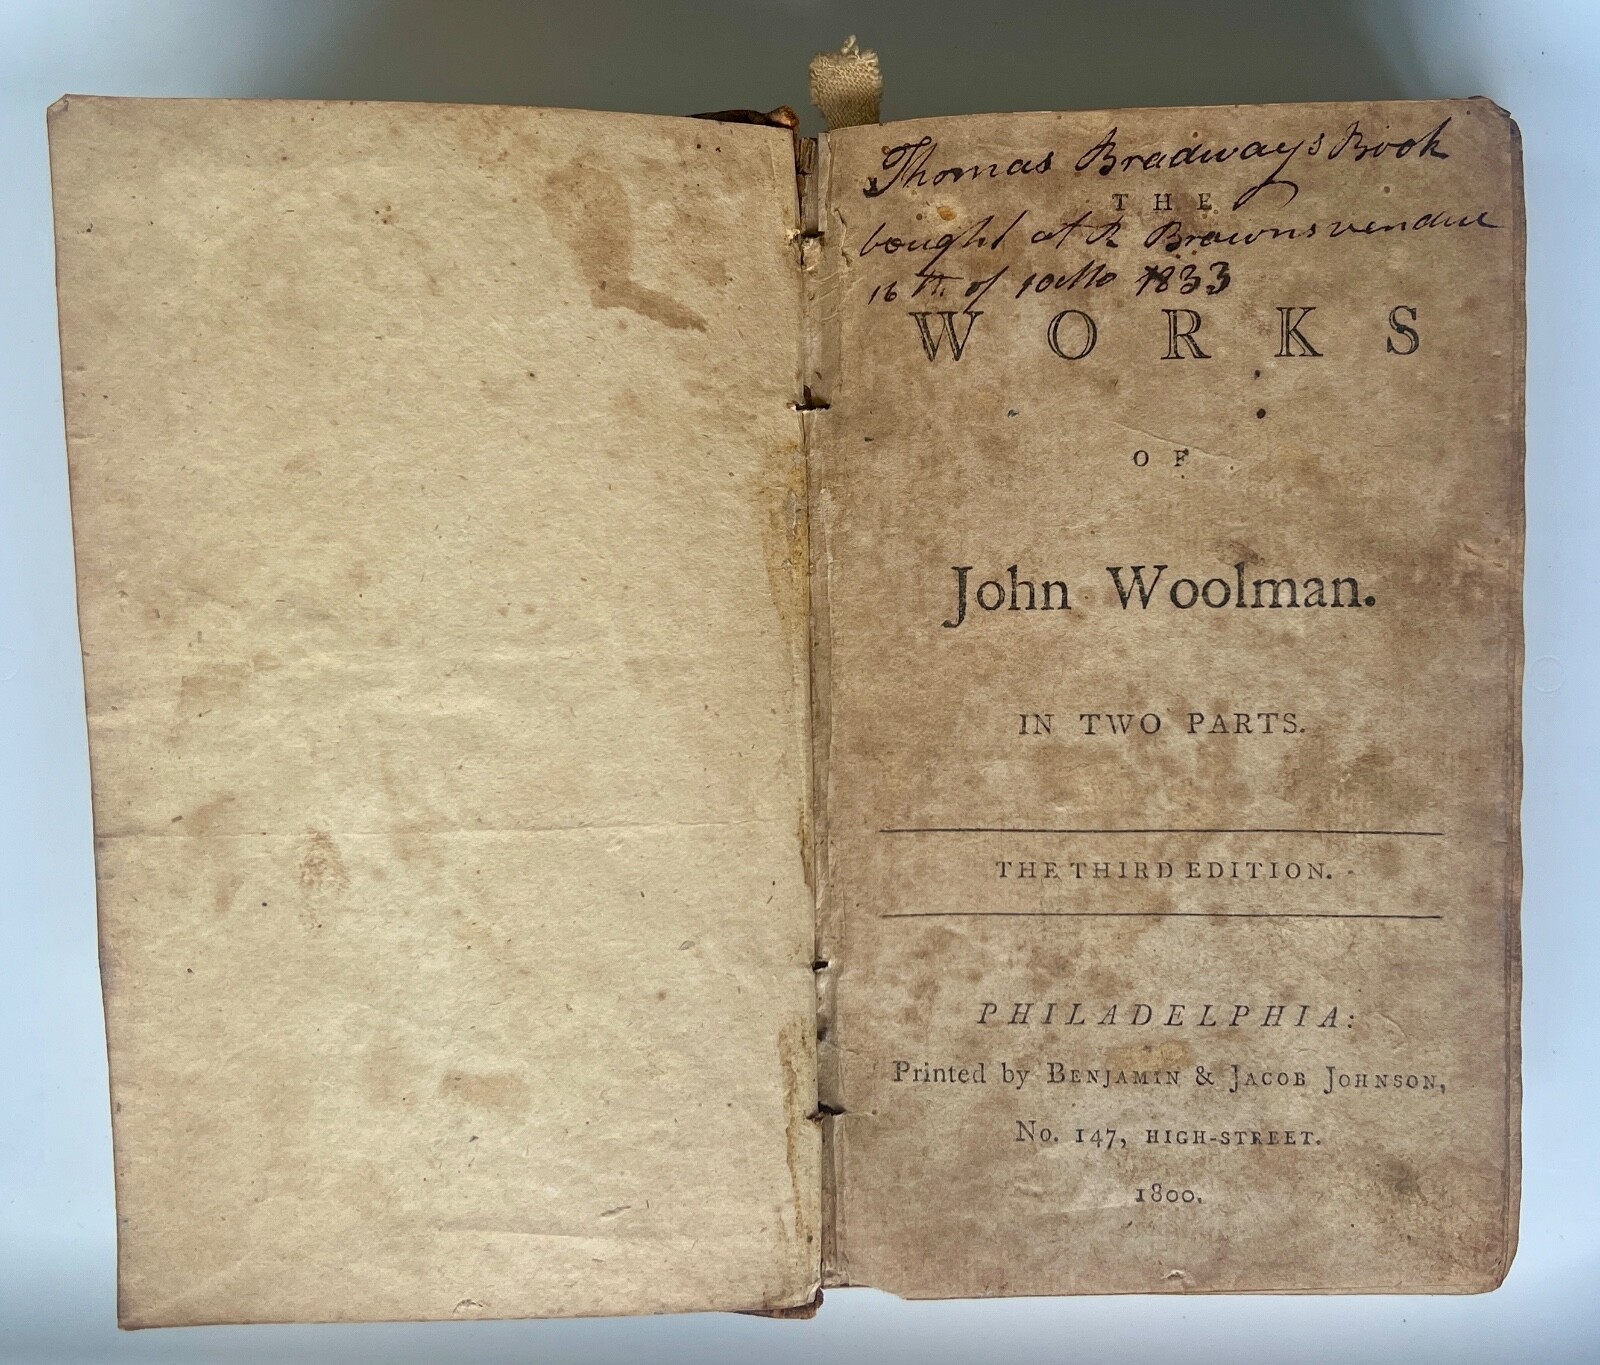 Thomas Bradways Book
THE
bought at R Browns vendue
16th of 10th Mo 1833
WORKS
OF
John Woolman.
IN TWO PARTS.
THE THIRD EDITION.
PHILADELPHIA:
Printed by BENJAMIN & JACOB JOHNSON,
No. 147, HIGH-STREET.
1800.